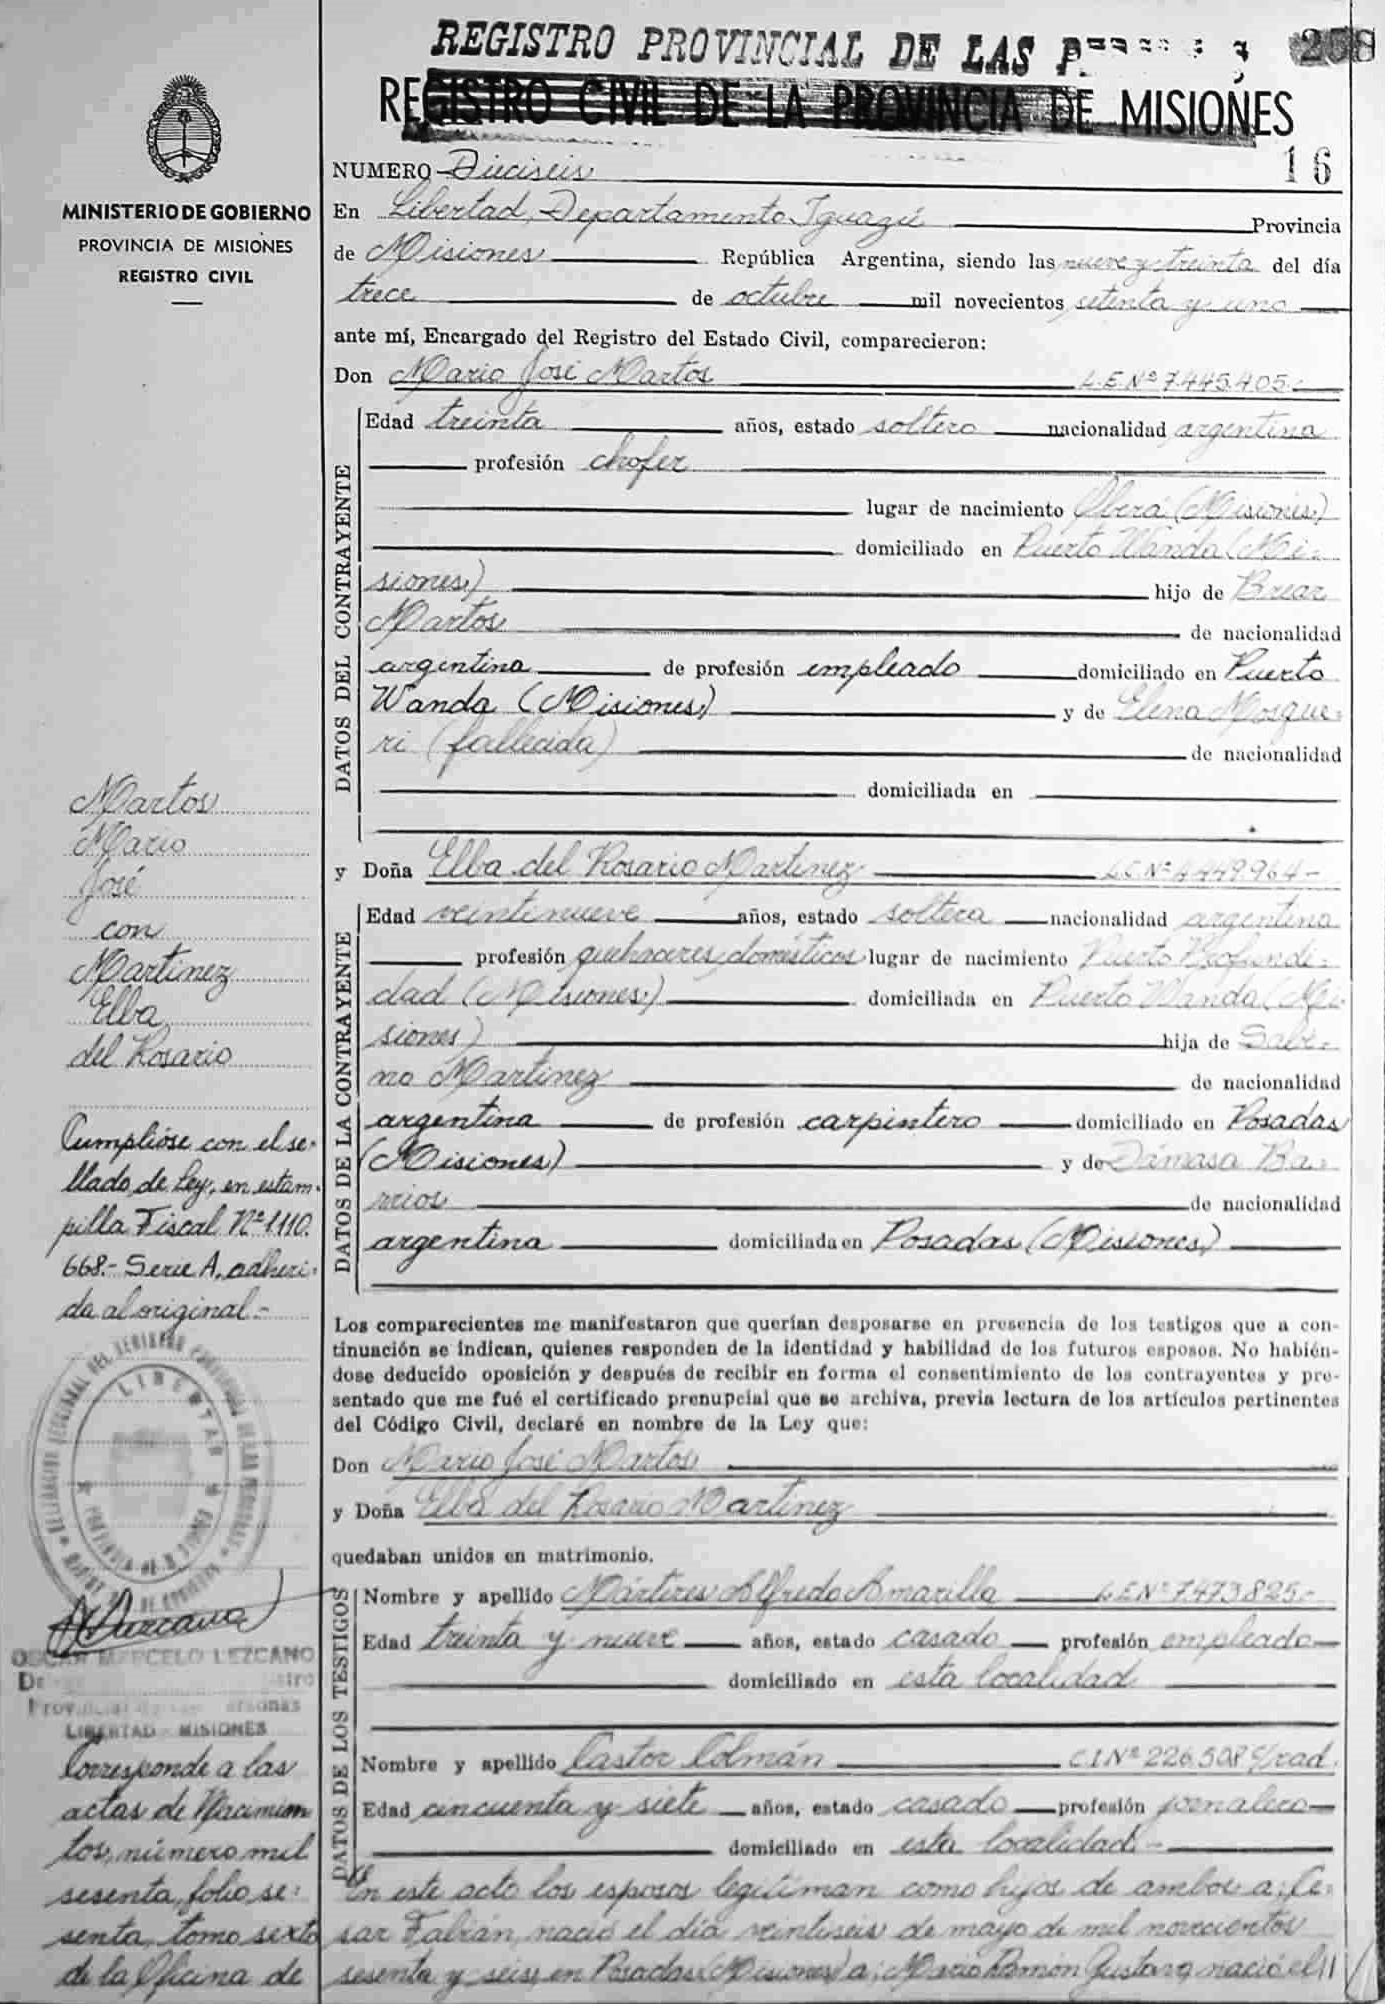 REGISTRO PROVINCIAL DE LAS
258
REGISTRO CIVIL DE LA PROVINCIA DE MISIONES
16
MINISTERIO DE GOBIERNO
PROVINCIA DE MISIONES
REGISTRO CIVIL
NUMERO Dieciseis
En Libertad, Departamento Iguazú Provincia
de Misiones República Argentina, siendo las nueve y treinta del día
trece de octubre mil novecientos setenta y uno
ante mí, Encargado del Registro del Estado Civil, comparecieron:
Don Mario José Martos L.E.Nº 7.445.405.-
DATOS DEL CONTRAYENTE
Edad treinta años, estado soltero nacionalidad argentina
profesión chofer
lugar de nacimiento Oberá (Misiones)
domiciliado en Puerto Wanda (Mi-
siones) hijo de
Martos de nacionalidad
argentina de profesión empleado domiciliado en Puerto
Wanda (Misiones) y de Elena Mosque-
ri (fallecida) de nacionalidad
domiciliada en
y Doña Elba del Rosario Martinez L.C.Nº 4.449.964-
DATOS DE LA CONTRAYENTE
Edad veintinueve años, estado soltera nacionalidad argentina
profesión quehaceres domésticos lugar de nacimiento Puerto Profundi-
dad (Misiones) domiciliada en Puerto Wanda (Mi-
siones) hija de Sabi-
no Martinez de nacionalidad
argentina de profesión carpintero domiciliado en Posadas
(Misiones) y de Dámasa Ba-
rrios de nacionalidad
argentina domiciliada en Posadas (Misiones)
Los comparecientes me manifestaron que querían desposarse en presencia de los testigos que a con-
tinuación se indican, quienes responden de la identidad y habilidad de los futuros esposos. No habién-
dose deducido oposición y después de recibir en forma el consentimiento de los contrayentes y pre-
sentado que me fué el certificado prenupcial que se archiva, previa lectura de los artículos pertinentes
del Código Civil, declaré en nombre de la Ley que:
Don Mario José Martos
y Doña Elba del Rosario Martinez
quedaban unidos en matrimonio.
DATOS DE LOS TESTIGOS
Nombre y apellido Mártires Alfredo Amarilla L.E.Nº 7.473.825.-
Edad treinta y nueve años, estado casado profesión empleado
domiciliado en esta localidad
Nombre y apellido Castor Colmán C.I.Nº 226.508
Edad cincuenta y siete años, estado casado profesión jornalero
domiciliado en esta localidad.-
En este acto los esposos legitiman como hijos de ambos a: Ce-
sar Fabián, nació el día veintiseis de mayo de mil novecientos
sesenta y seis, en Posadas (Misiones) a: Mario Ramón Gustavo, nació el
Martos
Mario
José
con
Martinez
Elba
del Rosario
Cumplióse con el se-
llado de Ley, en estam-
pilla Fiscal Nº 1.110.
668.- Serie A, adheri-
da al original.-
LIBERTAD
PROVINCIA DE MISIONES
OSCAR MARCELO LEZCANO
LIBERTAD - MISIONES
Corresponde a las
actas de Nacimien
tos, número mil
sesenta, folio se-
senta, tomo sexto
de la Oficina de